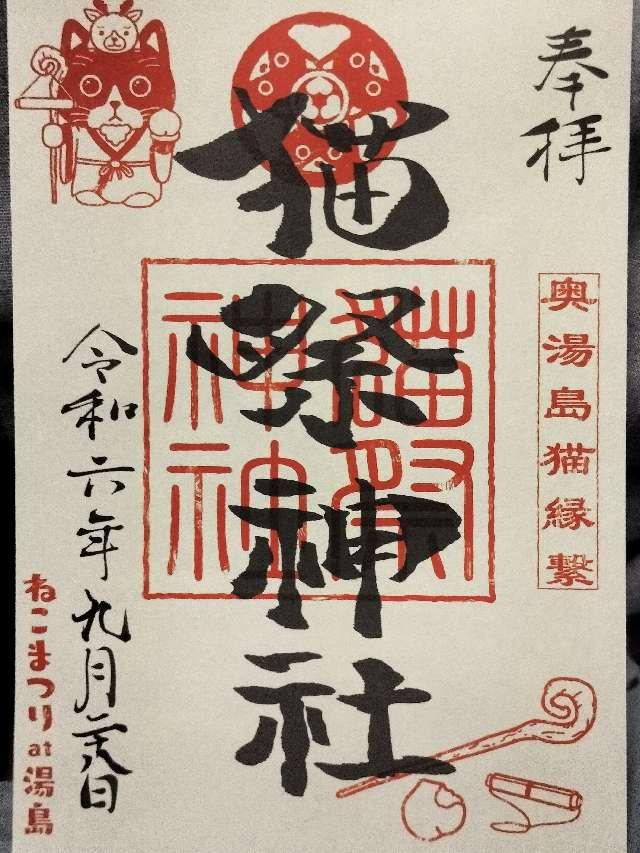 奉拝
奥湯島猫縁繋
猫祭神社
猫祭
神社
令和六年九月二十八日
ねこまつり at 湯島